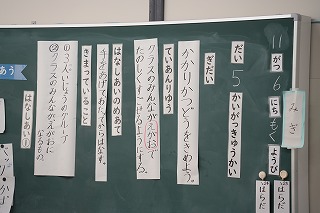 11がつ6にちもくようび
みぎ
だい5かいがっきゅうかい
ぎだい
かかりかつどうをきめよう。
ていあんりゆう
クラスのみんながえがおで
たのしくすごせるようにする。
はなしあいのめあて
手をあげてみんなからはなす。
きまっていること
①3人いじょうのグループ
②クラスのみんながえがおに
なるもの。
はなしあい①